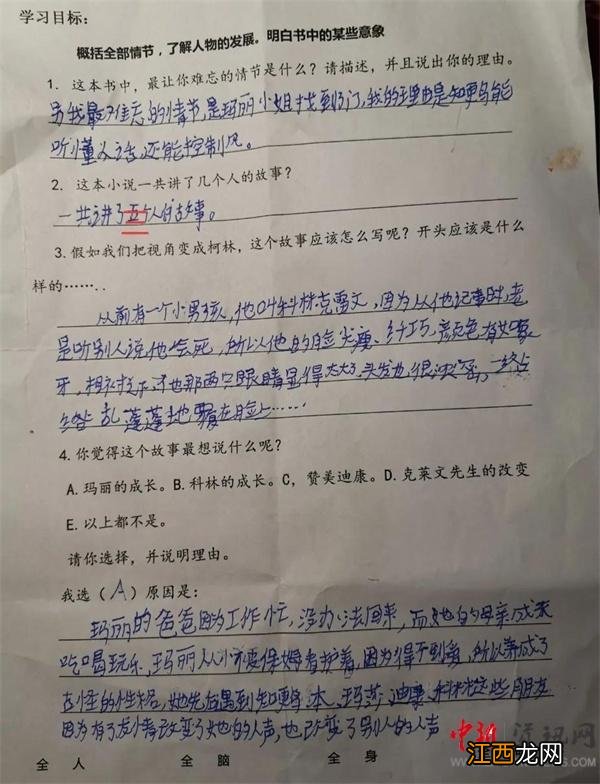 学习目标：
概括全部情节，了解人物的发展。明白书中的某些意象
1. 这本书中，最让你难忘的情节是什么？请描述，并且说出你的理由。
另我最难忘的情节，是玛丽小姐找到了门，我的理由是知更鸟能
听懂人话，还能控制风。
2. 这本小说一共讲了几个人的故事？
一共讲了五个人的故事。
3. 假如我们把视角变成柯林，这个故事应该怎么写呢？开头应该是什么
样的……..
从前有一个小男孩，他叫科林克雷文，因为从他记事时，老
是听别人说他会死，所以他的脸尖瘦、纤巧，颜色有如象
牙，相衬之下他那两只眼睛显得太大了，头发也很浓密，一绺
绺乱蓬蓬地覆在脸上……
4. 你觉得这个故事最想说什么呢？
A. 玛丽的成长。B. 科林的成长。C，赞美迪康。D. 克莱文先生的改变
E. 以上都不是。
请你选择，并说明理由。
我选（ A ）原因是：
玛丽的爸爸因为工作忙，没办法回来，而她的母亲成天
吃喝玩乐，玛丽从小不要保姆看护着，因为得不到爱，所以养成了
古怪的性格，她先后遇到知更鸟、本、玛莎、迪康、科林这些朋友
因为有了友情改变了她的人声，也改变了别人的人声
全人 全脑 全身
中新资讯网
江西龙网